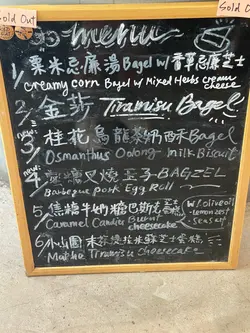 Sold Out
Sold Out
menu
1 粟米忌廉湯Bagel w/ 香草忌廉芝士
Creamy corn Bagel w/ Mixed Herbs cream cheese
2. Tiramisu Bagel
new!
3 桂花烏龍茶奶酥Bagel
Osmanthus Oolong-milk Biscuit
new!
4 叉燒 BAGEL
Barbeque pork Egg Roll
5 焦糖牛奶糖巴斯克蛋糕
Caramel Candie Burnt cheesecake
w/. olive oil
-lemon zest
-sea salt
6 小山園抹茶提拉米蘇芝士蛋糕
Matcha Tiramisu Cheesecake